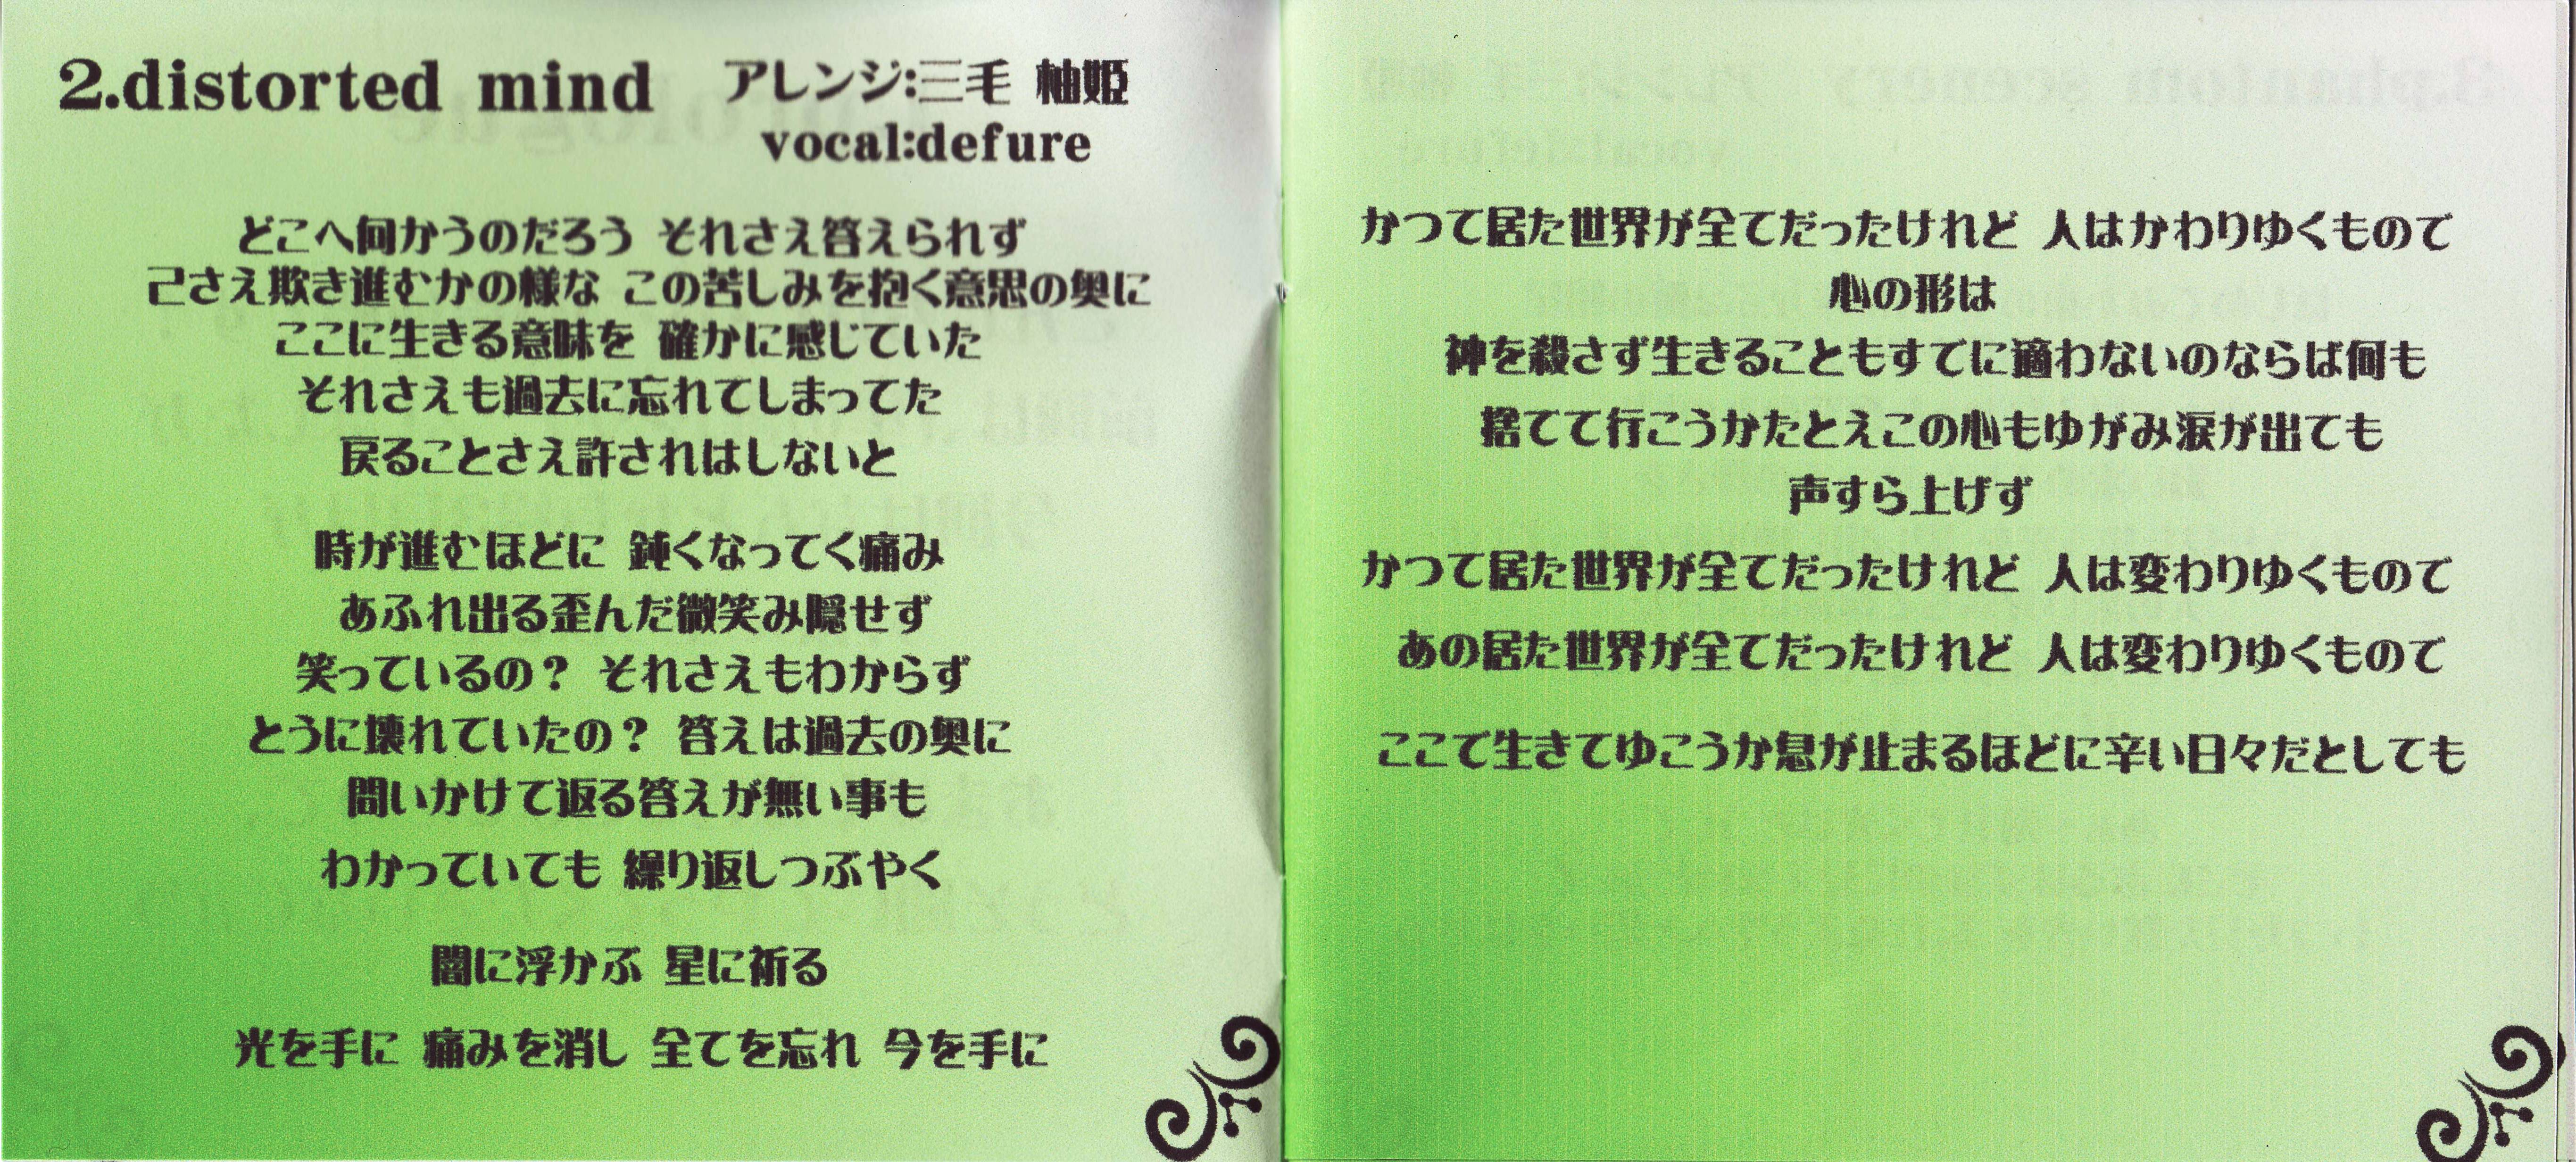 2.distorted mind アレンジ:三毛 柚姫
vocal:defure
どこへ向かうのだろう それさえ答えられず
己さえ欺き進むかの様な この苦しみを抱く意思の奥に
ここに生きる意味を 確かに感じていた
それさえも過去に忘れてしまってた
戻ることさえ許されはしないと
時が進むほどに 鈍くなってく痛み
あふれ出る歪んだ微笑み隠せず
笑っているの? それさえもわからず
とうに壊れていたの? 答えは過去の奥に
問いかけて返る答えが無い事も
わかっていても 繰り返しつぶやく
闇に浮かぶ 星に祈る
光を手に 痛みを消し 全てを忘れ 今を手に
かつて居た世界が全てだったけれど 人はかわりゆくもので
心の形は
神を殺さず生きることもすでに適わないのならば何も
捨てて行こうかたとえこの心もゆがみ涙が出ても
声すら上げず
かつて居た世界が全てだったけれど 人は変わりゆくもので
あの居た世界が全てだったけれど 人は変わりゆくもので
ここて生きてゆこうか息が止まるほどに辛い日々だとしても